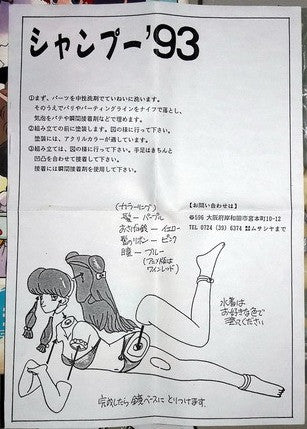 シャンプー'93
①まず、パーツを中性洗剤でていねいに洗います。
そのうえでバリやパーティングラインをナイフで落とし、
気泡をパテや瞬間接着剤などで埋めます。
②組み立ての前に塗装します。図の様に行って下さい。
塗装には、アクリルカラーが適しています。
③組み立ては、図の様に行って下さい。手足はきちんと
凹凸を合わせて接着して下さい。
接着には瞬間接着剤を使用して下さい。
(カラーリング)
髪 ― パープル
おさげの鈴 ― イエロー
髪のリボン ― ピンク
瞳 ― ブルー
(アニメ版は
ワインレッド)
【お問い合わせは】
〒596 大阪府岸和田市宮本町10-12
TEL 0724 (39) 6374 ㈱ムサシヤまで
水着は
お好きな色で
塗ってください
完成したら鏡ベースにとりつけます